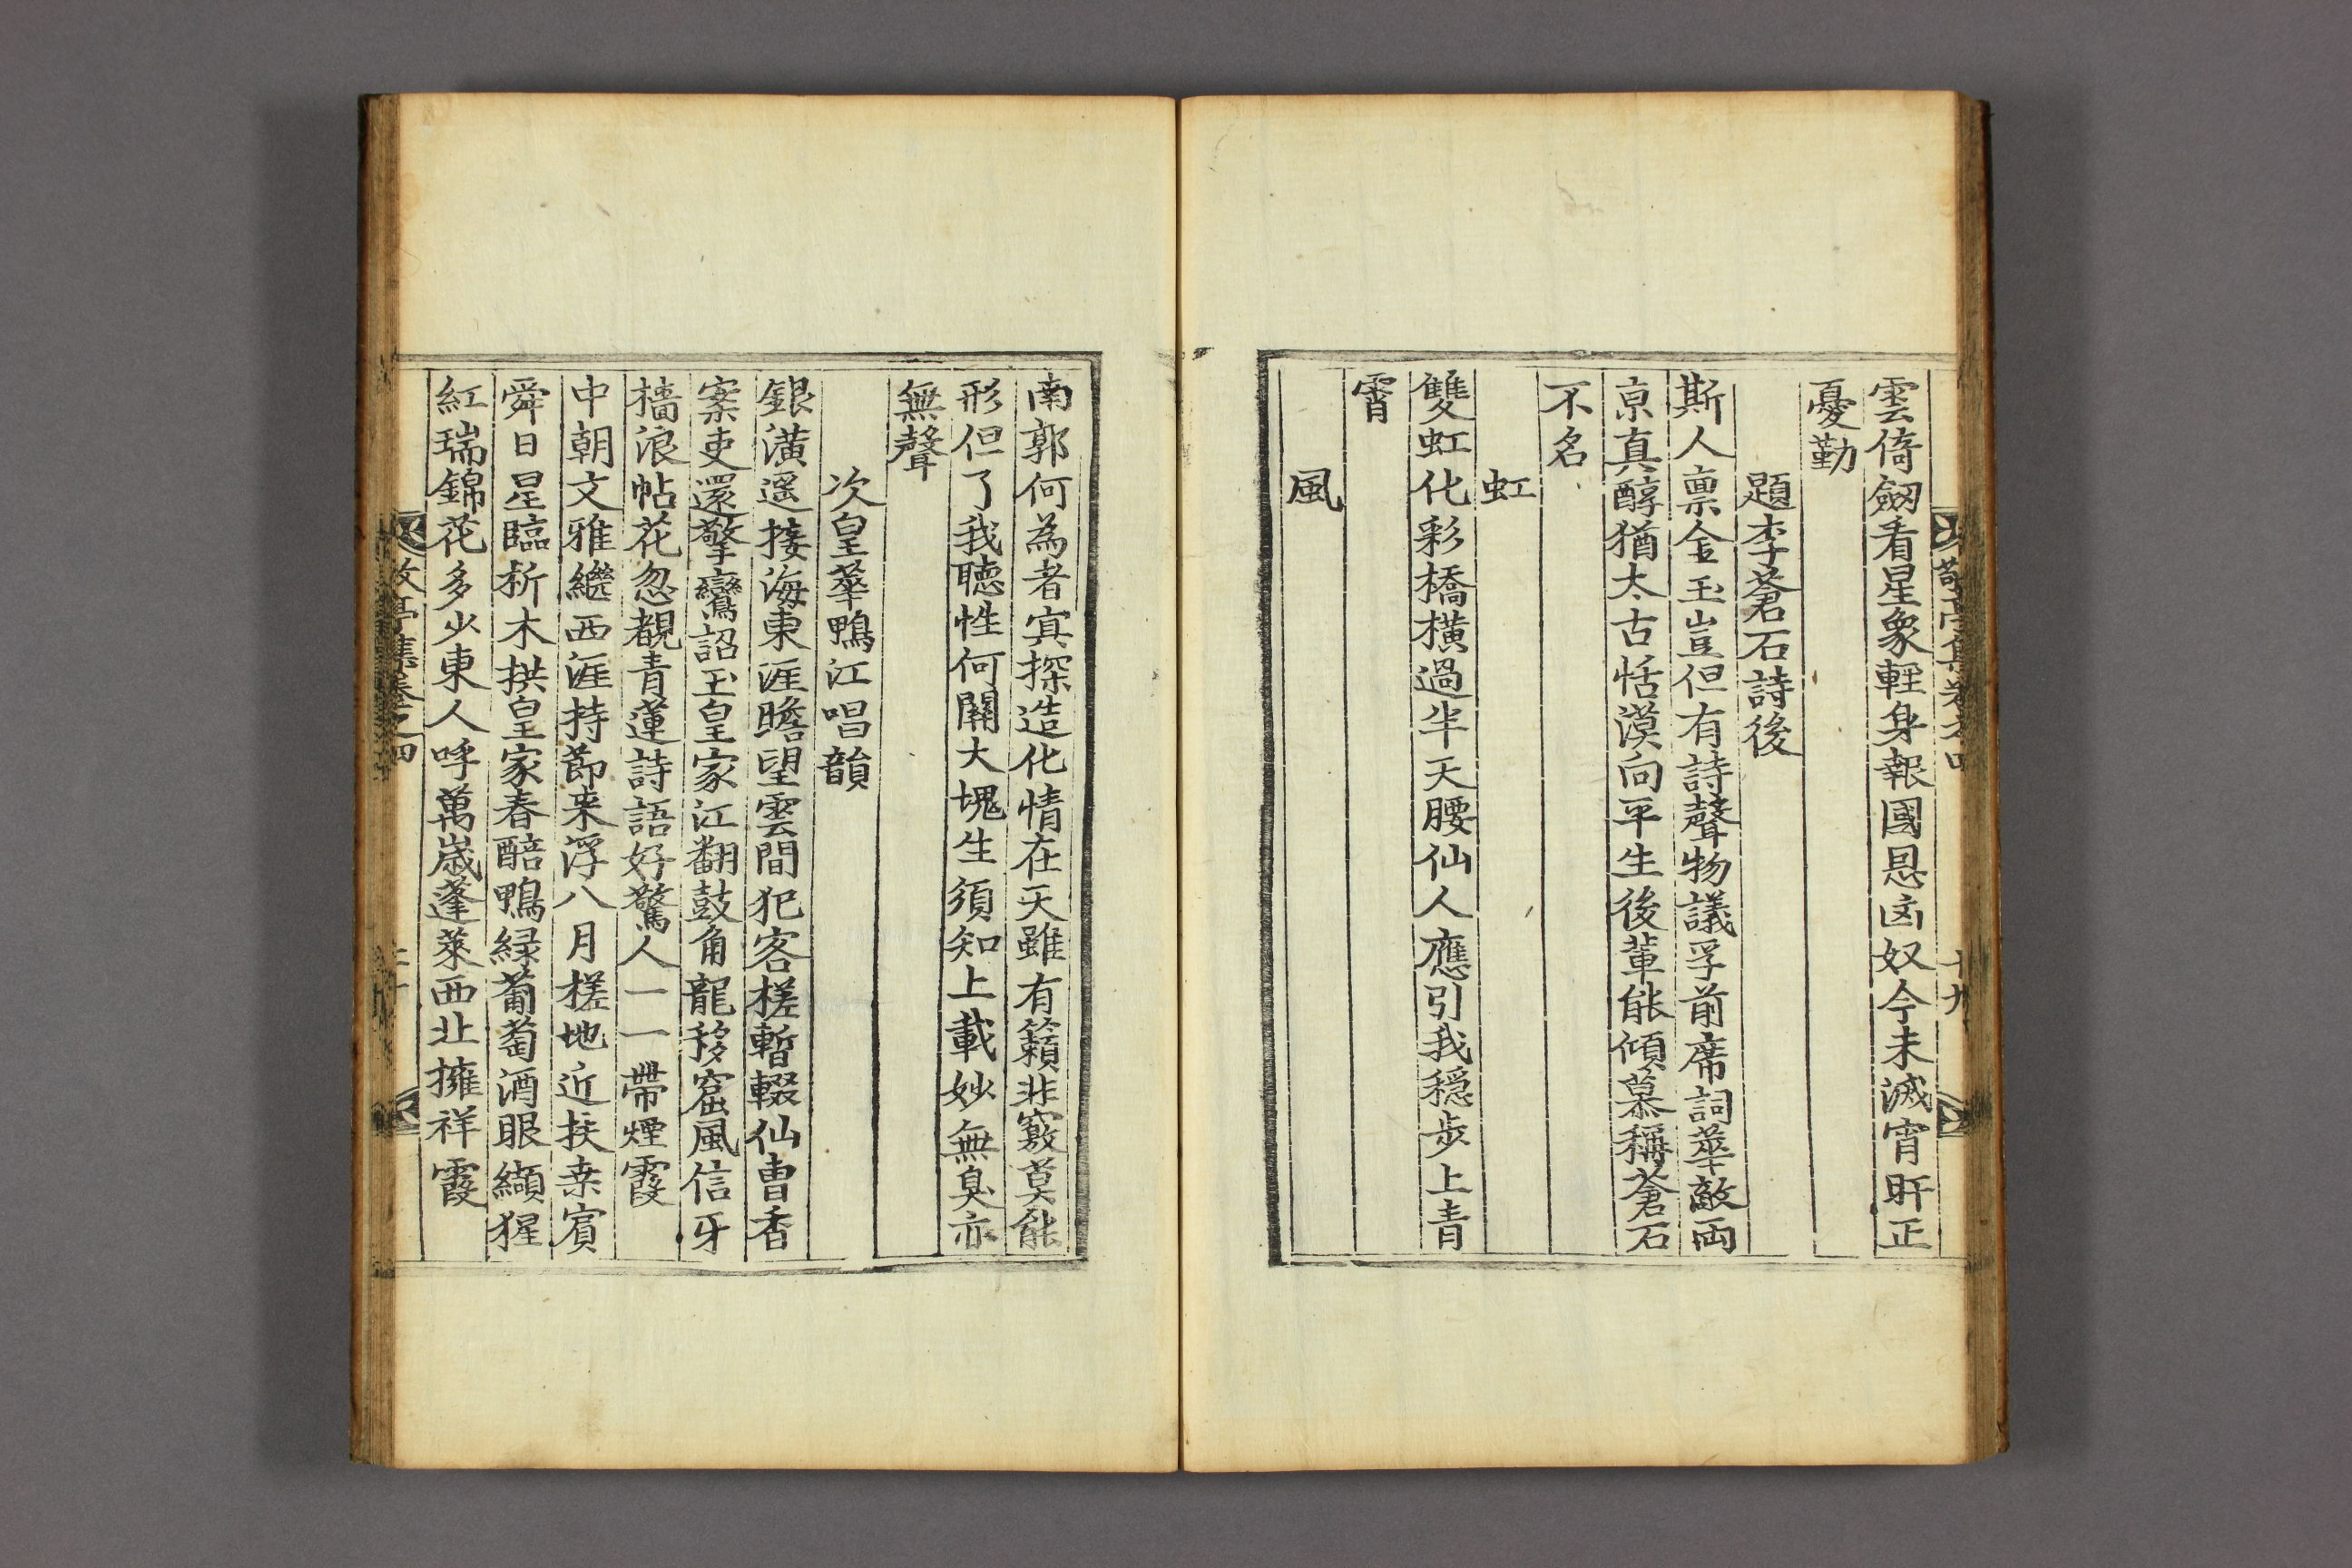 雲倚劒看星象輕身報國恩凶奴今未滅宵旰正
憂勤
題李蒼石詩後
斯人禀金玉豈但有詩聲物議孚前席詞華敵兩
京真醇猶太古恬漠向平生後輩能傾慕稱蒼石
不名
虹
雙虹化彩橋橫過半天腰仙人應引我穩步上青
霄
風
南郭何為者冥探造化情在天雖有籟非竅莫能
形但了我聽性何關大塊生須知上載妙無臭亦
無聲
次皇華鴨江唱韻
銀潢遥接海東涯瞻望雲間犯客槎暫輟仙曹香
案吏還擎鸞詔玉皇家江翻鼓角龍移窟風信牙
檣浪帖花忽覩青蓮詩語好驚人一一帶煙霞
中朝文雅繼西涯持節来浮八月槎地近扶桒賔
舜日星臨析木拱皇家春醅鴨綠葡萄酒眼纈猩
紅瑞錦花多少東人呼萬歲蓬萊西北擁祥霞
敬亭集卷之四